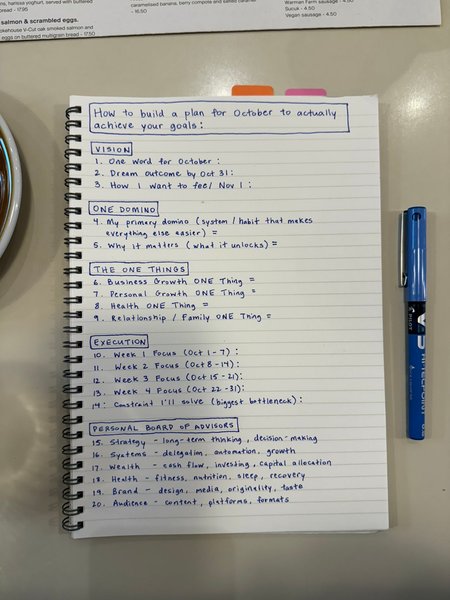 ns, harissa yoghurt, served with buttered
bread - 17.95
salmon & scrambled eggs.
okehouse V-Cut oak smoked salmon and
eggs on buttered multigrain bread - 17.50
caramelised banana, berry compote and salted caramel
- 16.50
Warman Farm sausage - 4.50
Sucuk - 4.50
Vegan sausage - 4.50
How to build a plan for October to actually
achieve your goals:
VISION
1. One word for October :
2. Dream outcome by Oct 31:
3. How I want to feel Nov 1 :
ONE DOMINO
4. My primary domino (system / habit that makes
everything else easier) =
5. Why it matters (what it unlocks) =
THE ONE THINGS
6. Business Growth ONE Thing =
7. Personal Growth ONE Thing =
8. Health ONE Thing =
9. Relationship / Family ONE Thing =
EXECUTION
10. Week 1 Focus (Oct 1-7) :
11. Week 2 Focus (Oct 8-14) :
12. Week 3 Focus (Oct 15-21):
13. Week 4 Focus (Oct 22-31):
14: Constraint I'll solve (biggest bottleneck) :
PERSONAL BOARD OF ADVISORS
15. Strategy - long-term thinking, decision-making
16. Systems - delegation, automation, growth
17. Wealth - cash flow, investing, capital allocation
18. Health - fitness, nutrition, sleep, recovery
19. Brand - design, media, originality, taste
20. Audience - content, platforms, formats
PILOT
V5
HI-TECPOINT